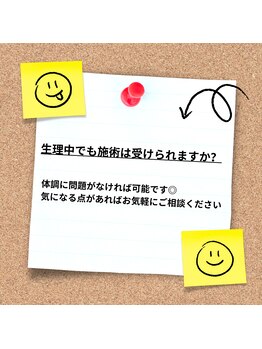 生理中でも施術は受けられますか?
体調に問題がなければ可能です◎
気になる点があればお気軽にご相談ください